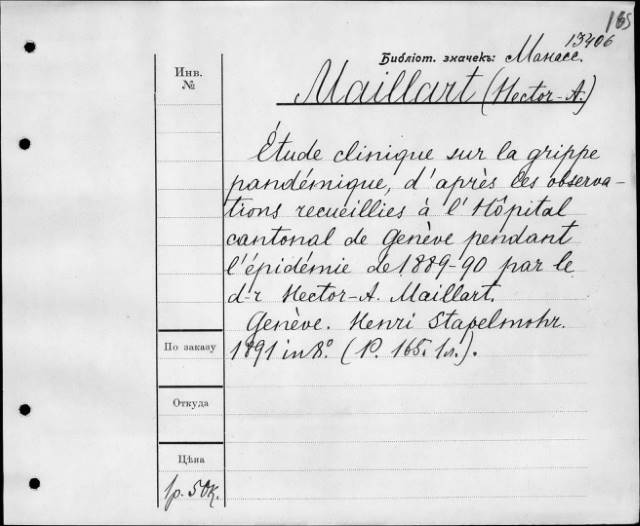 165
13406
Библіот. значекъ: Манасс.
Инв.
№
Maillart (Hector-A.)
Étude clinique sur la grippe
pandémique, d'après les observa-
tions recueillies à l'Hôpital
cantonal de Genève pendant
l'épidémie de 1889-90 par le
d-r Hector-A. Maillart.
Genève. Henri Stapelmohr.
1891 in 8°. (P. 165. 1л.).
По заказу
Откуда
Цѣна
1р. 50к.